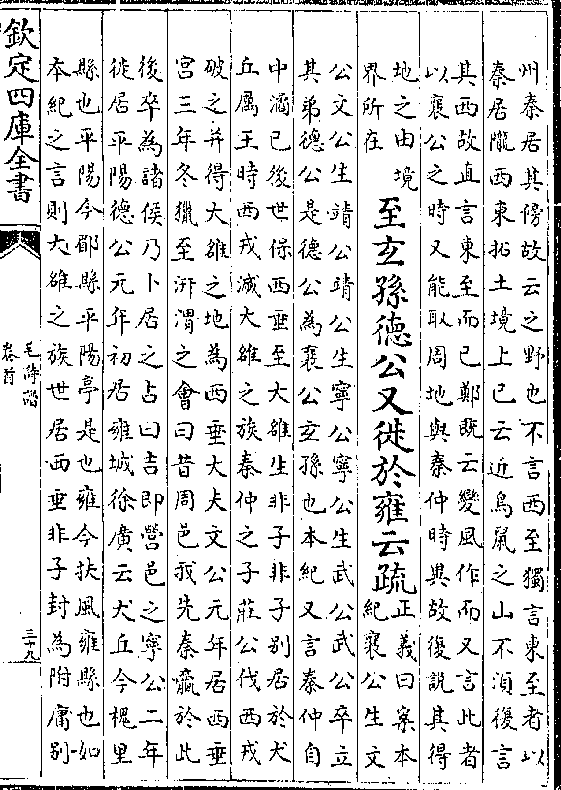 州秦居其傍故云之野也不言西至獨言東至者以
秦居隴西東拓土境上已云近鳥鼠之山不須復言
其西故直言東至而已鄭既云變風作而又言此者
以襄公之時又能取周地與秦仲時異故復說其得
地之由境
界所在
至玄孫德公又徙於雍云疏
正義曰案本
紀襄公生文
公文公生靖公靖公生寧公寧公生武公武公卒立
其弟德公是德公為襄公玄孫也本紀又言秦仲自
中潏已後世保西垂至大雒生非子非子別居於犬
丘厲王時西戎滅大雒之族秦仲之子莊公伐西戎
破之并得大雒之地為西垂大夫文公元年居西垂
宮三年冬獵至汧渭之會曰昔周邑我先秦嬴於此
後卒為諸侯乃卜居之占曰吉即營邑之寧公二年
徙居平陽德公元年初居雍城徐廣云犬丘今槐里
縣也平陽今郿縣平陽亭是也雍今扶風雍縣也如
本紀之言則大雒之族世居西垂非子封為附庸別
欽定四庫全書
毛詩譜
卷首
三十九